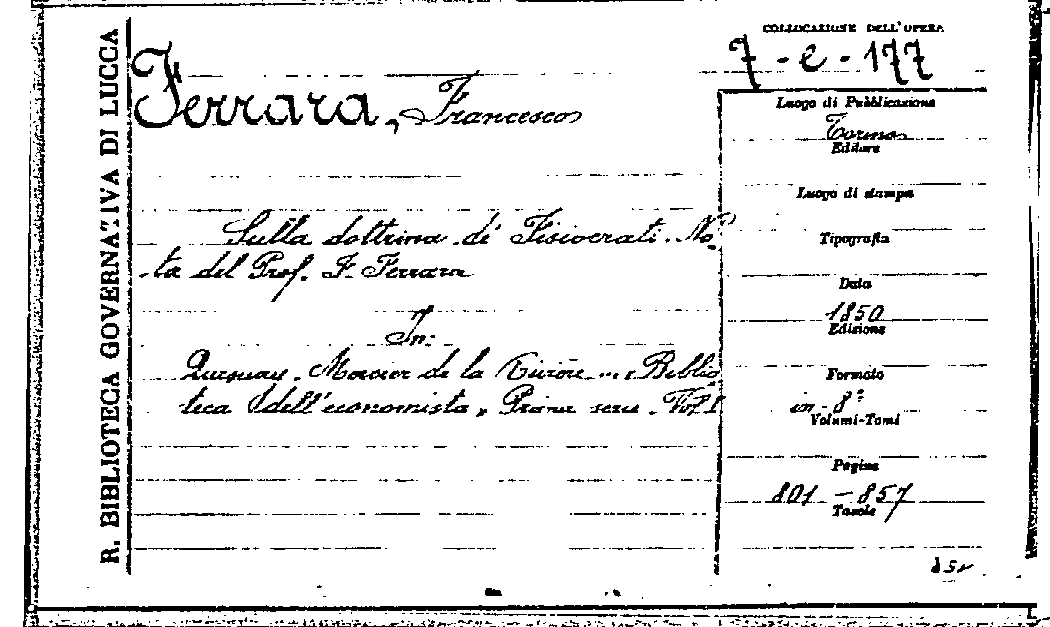 R. BIBLIOTECA GOVERNATIVA DI LUCCA
COLLOCAZIONE DELL'OPERA
7 - e - 177
Ferrara, Francesco
Sulla dottrina di Fisiocrati. No
ta del Prof. F. Ferrara
In:
Quesnay. Mercier de la Rivière... Biblio
teca dell'economista, Prima serie. Vol I
Luogo di Pubblicazione
Torino
Editore
Luogo di stampa
Tipografia
Data
1850
Edizione
Formato
in-8°
Volumi-Tomi
Pagine
801 - 857
Tavole